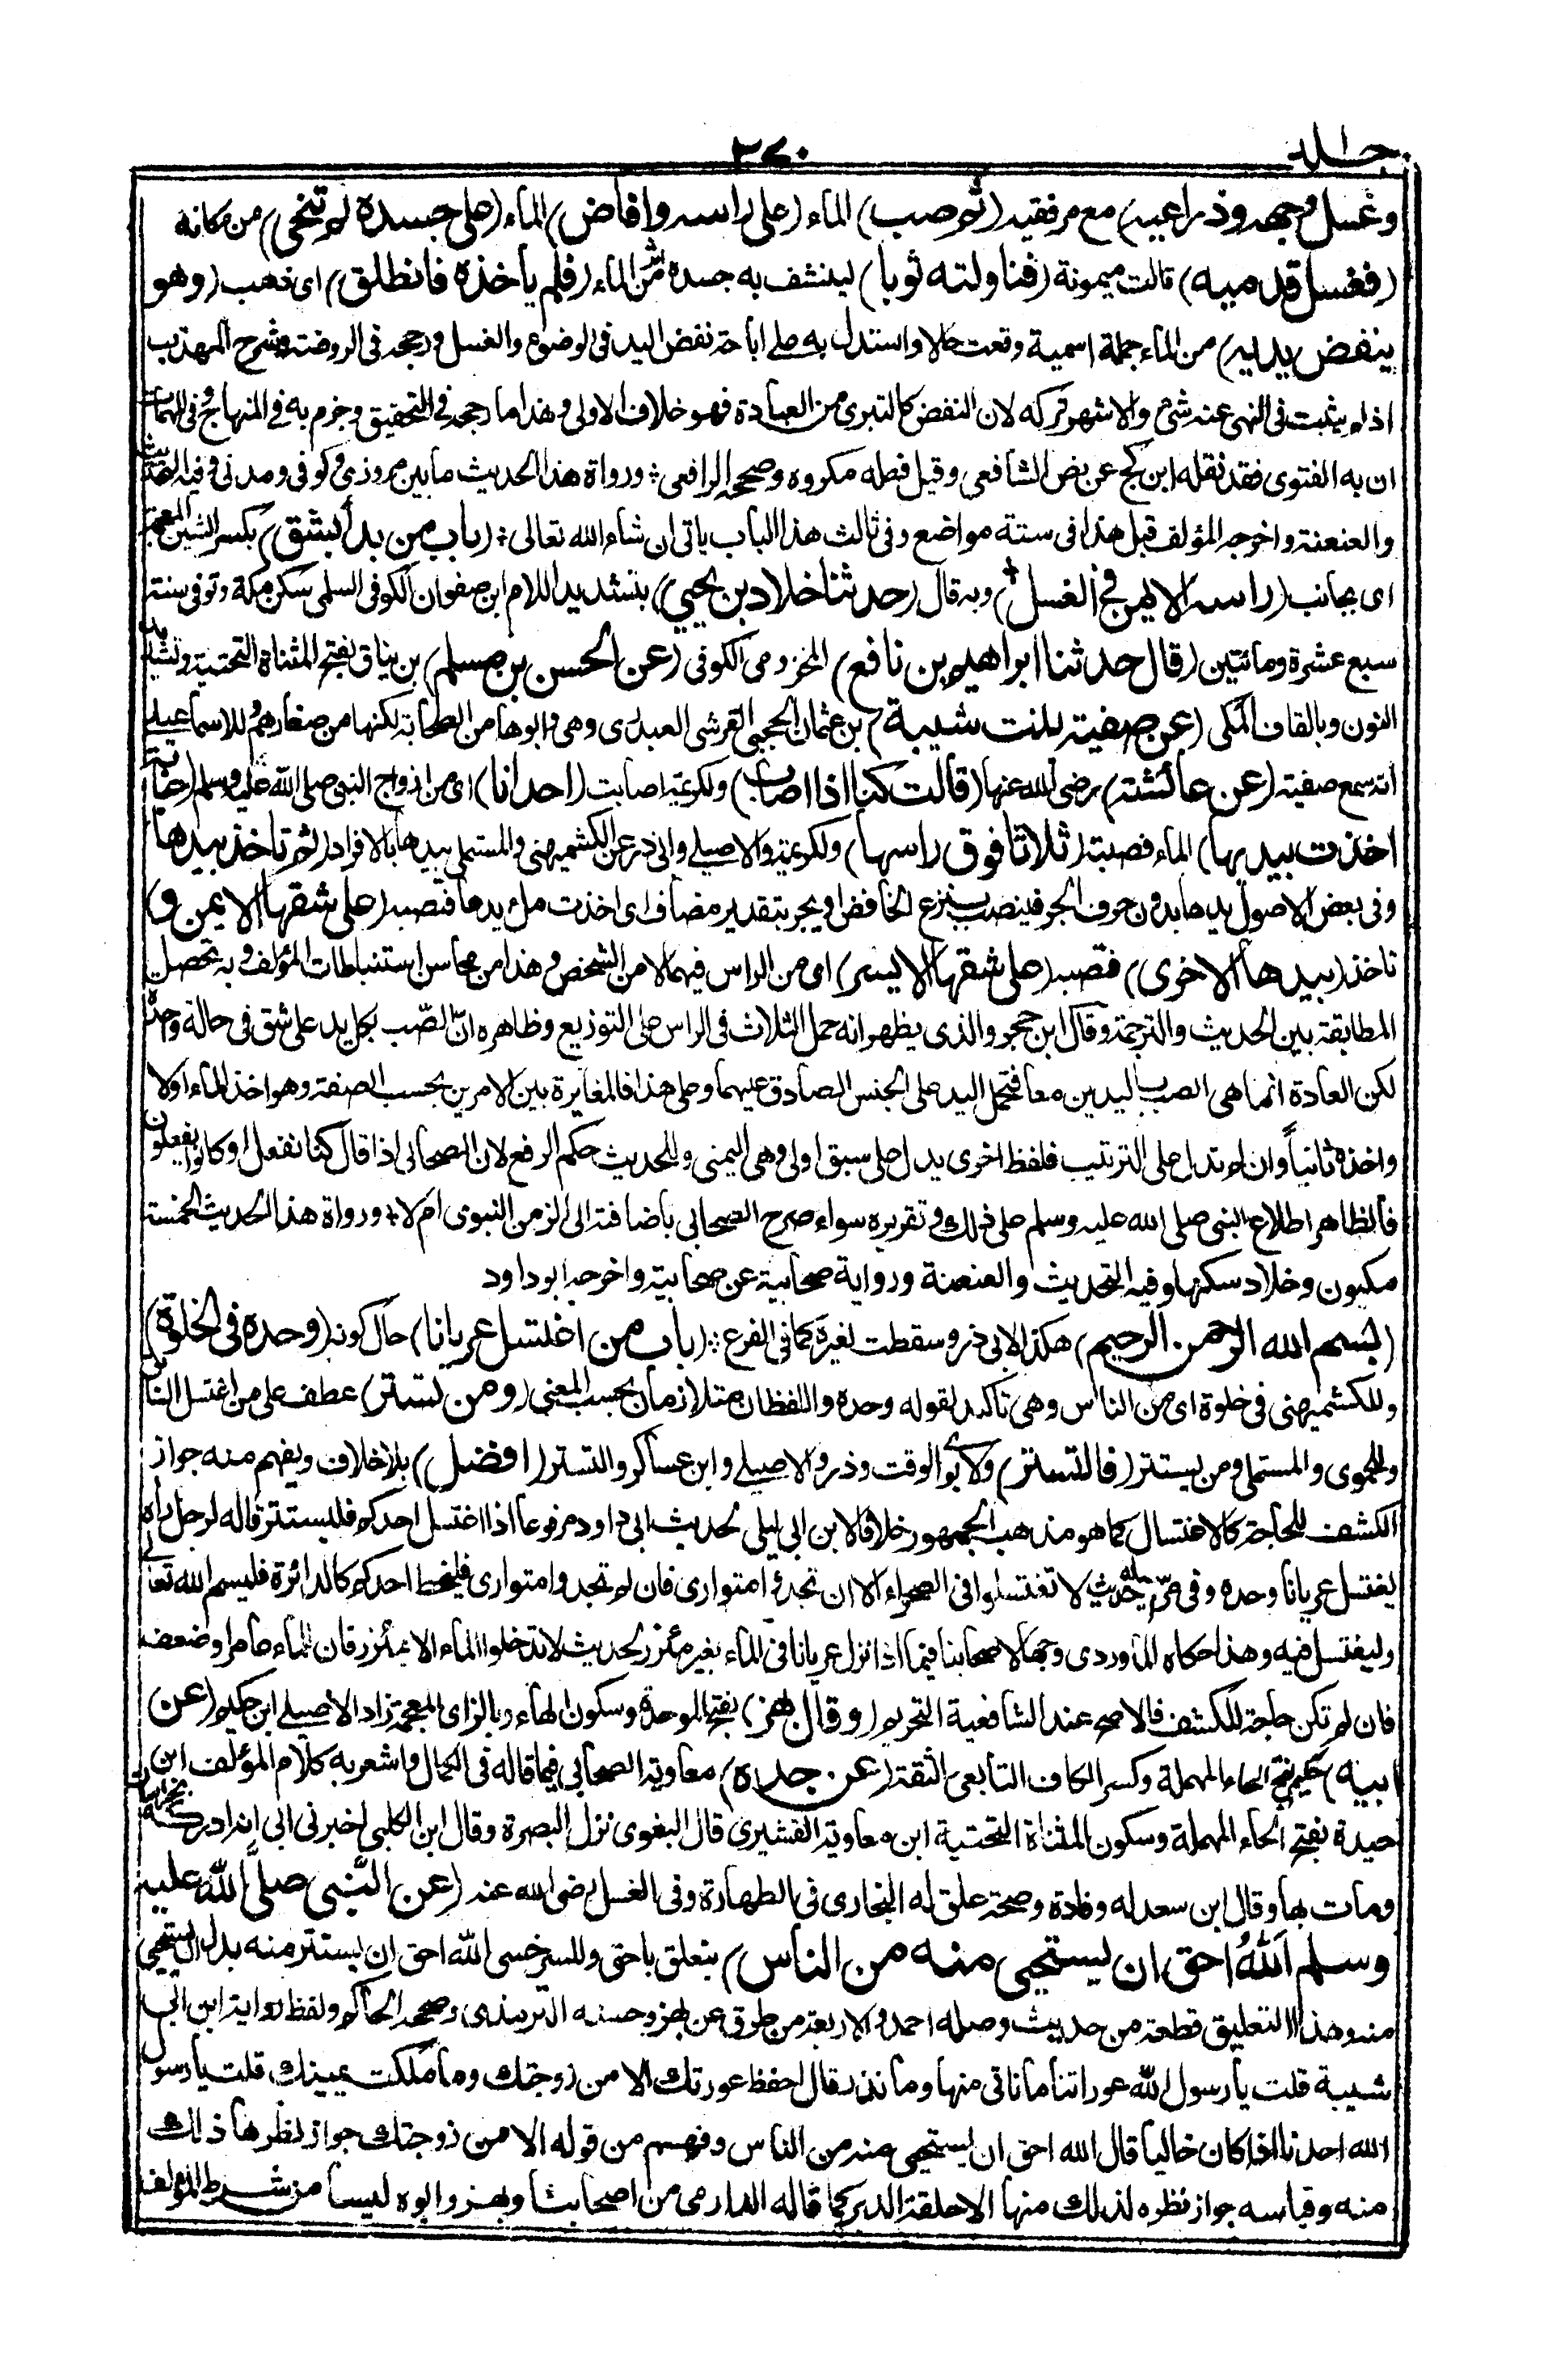 جلد ١
٢٧٠
وغسل وجهه وذراعيه) مع مرفقيه (ثم صب) الماء (على راسه وافاض) الماء (على جسده ثم تنحى) من مكانه
(فغسل قدميه) قالت ميمونة (فناولته ثوبا) لينشف به جسده من اثر الماء (فلم ياخذه فانطلق) اى ذهب (وهو
ينفض يديه) من الماء جملة اسمية وقعت حالا واستدل به على اباحة نفض اليد فى الوضوء والغسل ورجحه فى الروضة وشرح المهذب
اذلم يثبت فى النهى عنه شئ والاشهر تركه لان النفض كالتبرى من العبادة فهو خلاف الاولى وهذا ما رجحه فى التحقيق وجزم به فى المنهاج وفى المهمات
ان به الفتوى فقد نقله ابن كج عن نص الشافعى وقيل فعله مكروه وصححه الرافعى ؛ ورواة هذا الحديث ما بين مروزى وكوفى ومدنى وفيه التحديث
والعنعنة واخرجه المؤلف قبل هذا فى ستة مواضع وفى ثالث هذا الباب ياتى ان شاء الله تعالى ؛ (باب من بدأ بشق) بكسر الشين المعجمة
اى بجانب (راسه الايمن فى الغسل) وبه قال (حدثنا خلاد بن يحيى) بتشديد اللام ابن صفوان الكوفى السلمى سكن مكة وتوفى سنة
سبع عشرة ومائتين (قال حدثنا ابراهيم بن نافع) المخزومى الكوفى (عن الحسن بن مسلم) بن يناق بفتح المثناة التحتية وتشديد
النون وبالقاف المكى (عن صفية بنت شيبة) بن عثمان الحجبى القرشى العبدرى وهى وابوها من الصحابة لكنها من صغارهم وللاسماعيلى
انه سمع صفية (عن عائشة) رضى الله عنها (قالت كنا اذا اصاب) ولكريمة اصابت (احدانا) اى من ازواج النبى صلى الله عليه وسلم (جنابة
اخذت بيديها) الماء فصبته (ثلاثا فوق راسها) ولكريمة والاصيلى وابى ذر عن الكشميهنى والمستملى بيدها بالافراد (ثم تاخذ بيدها
وفى بعض الاصول يدها بدون حرف الجر فينصب بنزع الخافض او يجر بتقدير مضاف اى اخذت ملء يدها فتصبه (على شقها الايمن و)
تاخذ (بيدها الاخرى) فتصبه (على شقها الايسر) اى من الراس فيهما لا من الشخص وهذا من محاسن استنباطات المؤلف وبه تحصل
المطابقة بين الحديث والترجمة وقال ابن حجر والذى يظهر انه حمل الثلاث فى الراس على التوزيع وظاهره ان الصب بكل يد على شق فى حالة واحدة
لكن العادة انما هى الصب باليدين معا فتحمل اليد على الجنس الصادق عليهما وعلى هذا فالمغايرة بين الامرين بحسب الصفة وهو اخذ الماء اولا
واخذه ثانيا وان لم تدل على الترتيب فلفظ اخرى يدل على سبق اولى وهى اليمنى وللحديث حكم الرفع لان الصحابى اذا قال كنا نفعل او كانوا يفعلون
فالظاهر اطلاع النبى صلى الله عليه وسلم على ذلك وتقريره سواء صرح الصحابى باضافته الى الزمن النبوى ام لا ؛ ورواة هذا الحديث الخمسة
مكيون وخلاد سكنها وفيه التحديث والعنعنة ورواية صحابية عن صحابية واخرجه ابو داود
(بسم الله الرحمن الرحيم) هكذا لابى ذر وسقطت لغيره كما فى الفرع ؛ (باب من اغتسل عريانا) حال كونه (وحده فى الخلوة)
وللكشميهنى فى خلوة اى من الناس وهى تاكيد لقوله وحده واللفظان متلازمان بحسب المعنى (ومن تستر) عطف على من اغتسل السابق
وللحموى والمستملى ومن يستتر (فالتستر) ولابوى الوقت وذر والاصيلى وابن عساكر والتستر (افضل) بلا خلاف ويفهم منه جواز
الكشف للحاجة كالاغتسال كما هو مذهب الجمهور خلافا لابن ابى ليلى لحديث ابى داود مرفوعا اذا اغتسل احدكم فليستتر قاله لرجل راه
يغتسل عريانا وحده وفى مرسله حديث لا تغتسلوا فى الصحراء الا ان تجدوا متوارى فان لم تجدوا متوارى فليخط احدكم كالدائرة فليسم الله تعالى
وليغتسل فيه وهذا حكاه الماوردى وجها لاصحابنا فيما اذا نزل عريانا فى الماء بغير مئزر لحديث لا تدخلوا الماء الا بمئزر فان للماء عامرا وضعفه
فان لم تكن حاجة للكشف فالاصح عند الشافعية التحريم (وقال بهز) بفتح الموحدة وسكون الهاء وبالزاى المعجمة زاد الاصيلى ابن حكيم (عن
ابيه) حكيم بفتح الحاء المهملة وكسر الكاف التابعى الثقة (عن جده) معاوية الصحابى فيما قاله فى الكمال واشعر به كلام المؤلف ابن
حيدة بفتح الحاء المهملة وسكون المثناة التحتية ابن معاوية القشيرى قال البغوى نزل البصرة وقال ابن الكلبى اخبرنى ابى انه ادركه بخراسان
ومات بها وقال ابن سعد له وفادة وصحبة علق له البخارى فى الطهارة وفى الغسل رضى الله عنه (عن النبى صلى الله عليه
وسلم الله احق ان يستحيى منه من الناس) يتعلق باحق وللسرخسى الله احق ان يستتر منه بدل ان يستحيى
منه وهذا التعليق قطعة من حديث وصله احمد والاربعة من طرق عن بهز وحسنه الترمذى وصححه الحاكم ولفظ رواية ابن ابى
شيبة قلت يا رسول الله عوراتنا ما ناتى منها وما نذر قال احفظ عورتك الا من زوجتك وما ملكت يمينك قلت يا رسول
الله احدنا اذا كان خاليا قال الله احق ان يستحيى منه من الناس وفهم من قوله الا من زوجتك جواز نظرها ذلك
منه وقياسه جواز نظره لذلك منها الا حلقة الدبر كما قاله الدارمى من اصحابنا وبهز وابوه ليسا من شرط المؤلف